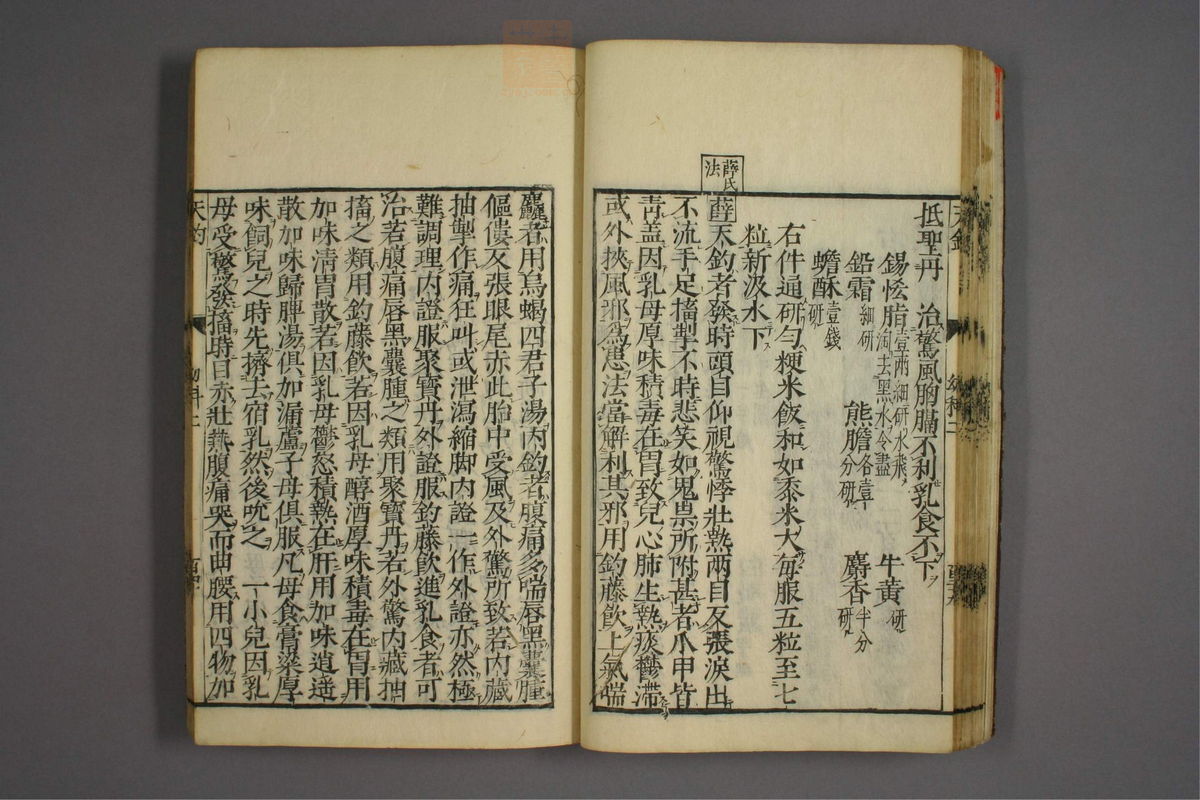 抵聖丹　治驚風胸膈不利乳食不下
錫恡脂壹兩細研水飛淘去黑水令盡　牛黄研
鉛霜細研　熊膽各壹分研　麝香半分研
蟾酥研壹錢
右件通研勻粳米飯和如黍米大每服五粒至七
粒新汲水下
薛氏法
薛天釣者發時頭目仰視驚悸壯熱兩目反張淚出
不流手足搐掣不時悲笑如鬼祟所附甚者爪甲皆
靑盖因乳母厚味積毒在胃致兒心肺生熱痰鬱滯
或外挾風邪爲患法當解利其邪用釣藤飮上氣喘
麤者用烏蝎四君子湯內釣者腹痛多喘唇黑囊腫
傴僂反張眼尾赤此胎中受風及外驚所致若內藏
抽掣作痛狂叫或泄瀉縮脚內證一作外證亦然極
難調理內證服聚寶丹外證服釣藤飮進乳食者可
治若腹痛唇黑囊腫之類用聚寶丹若外驚內藏抽
搐之類用釣藤飮若因乳母醇酒厚味積毒在胃用
加味淸胃散若因乳母鬱怒積熱在肝用加味逍遙
散加味歸脾湯俱加漏蘆子母俱服凡母食膏粱厚
味飼兒之時先擠去宿乳然後吮之　一小兒因乳
母受驚發搐時目赤壯熱腹痛哭而曲腰用四物加
天釣
幼科二